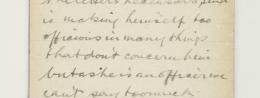 is making himself too
officious in many things
that don't concern him
but as he is an officer we
can't say too much